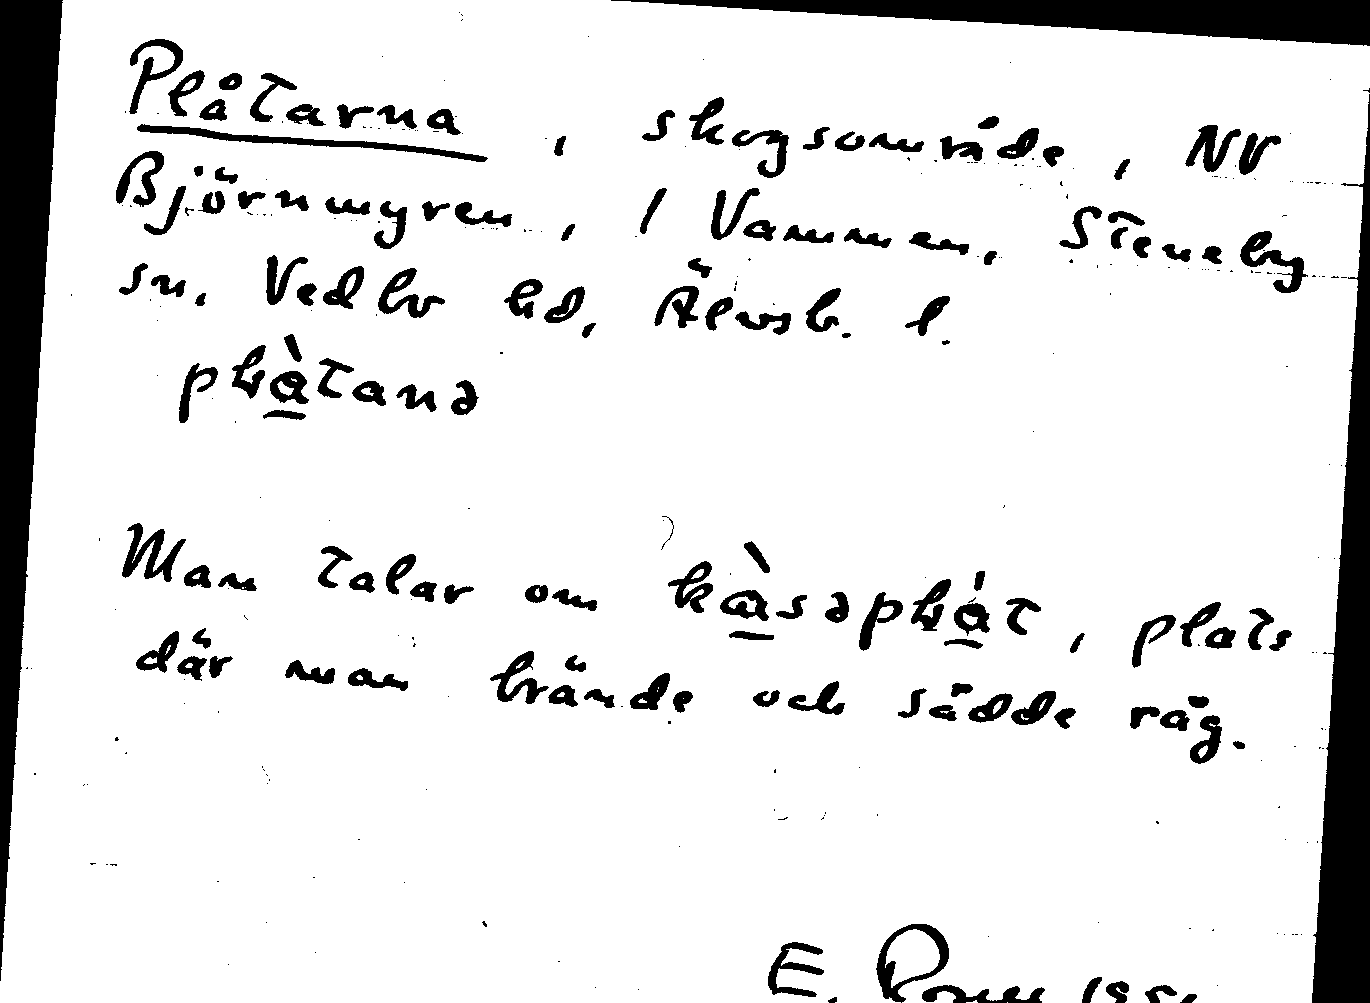 Plåtarna, skogsområde, NV
Björnmyren, 1 Vammen, Steneby
sn, Vedbo hd, Älvsb. l.
Man talar om plats
där man brände och sådde råg.
E.